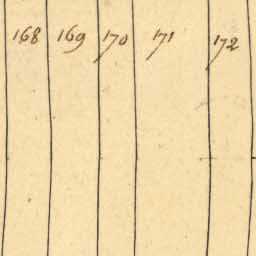 168 169 170 171 172